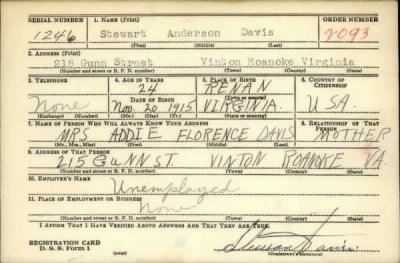 SERIAL NUMBER 1. NAME (Print) ORDER NUMBER
1246 Stewart Anderson Davis 2093
(First) (Middle) (Last)
2. ADDRESS (Print)
215 Gunn Street Vinton Roanoke Virginia
(Number and street or R. F. D. number) (Town) (County) (State)
3. TELEPHONE 4. AGE IN YEARS 5. PLACE OF BIRTH 6. COUNTRY OF CITIZENSHIP
24 RENAN
None DATE OF BIRTH (Town or county)
Nov. 20 1915 VIRGINIA. USA.
(Exchange) (Number) (Mo.) (Day) (Yr.) (State or country)
7. NAME OF PERSON WHO WILL ALWAYS KNOW YOUR ADDRESS 8. RELATIONSHIP OF THAT PERSON
MRS ADDIE FLORENCE DAVIS MOTHER
(Mr., Mrs., Miss) (First) (Middle) (Last)
9. ADDRESS OF THAT PERSON
215 GUNN ST VINTON ROANOKE VA.
(Number and street or R. F. D. number) (Town) (County) (State)
10. EMPLOYER'S NAME
Unemployed
11. PLACE OF EMPLOYMENT OR BUSINESS
None
(Number and street or R. F. D. number) (Town) (County) (State)
I AFFIRM THAT I HAVE VERIFIED ABOVE ANSWERS AND THAT THEY ARE TRUE.
REGISTRATION CARD
D. S. S. Form 1 Davis
(Registrant's signature)